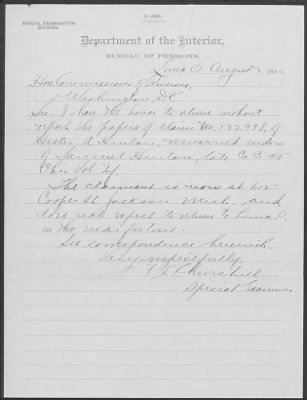 SPECIAL EXAMINATION
DIVISION.
Department of the Interior,
BUREAU OF PENSIONS,
Lima O. August
Hon. Commissioner of Pensions,
Washington, D.C.
Sir: I have the honor to return without
report the papers of claim No. 132998, of
Hester A. Hinton, remarried widow
of Samuel Hinton, late Co. C. 45
Ohio Vol. Inf.
The claimant is now at 605
Cooper St. Jackson Mich. and
does not expect to return to Lima, O.
in the near future.
See correspondence herewith.
Very respectfully,
Churchill
Special Examiner